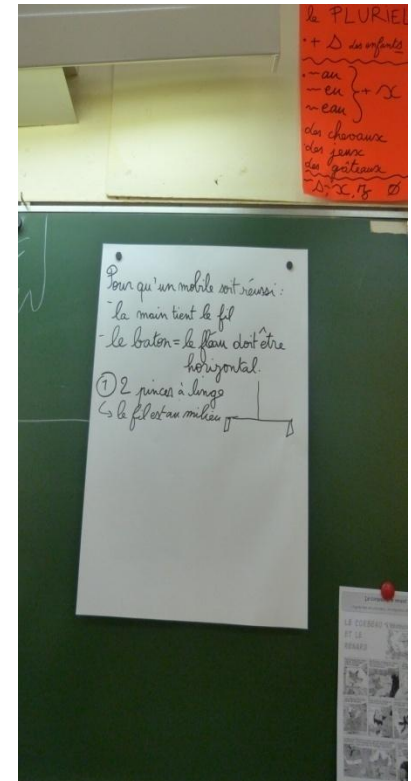 le PLURIEL
+ s des enfants
- au
~ eu
~ eau
} + x
des chevaux
des jeux
des gâteaux
s, x, z Ø
Pour qu'un mobile soit réussi :
- la main tient le fil
- le baton = le fléau doit être
horizontal.
1 2 pinces à linge
↳ le fil est au milieu
LE CORBEAU
ET LE
RENARD